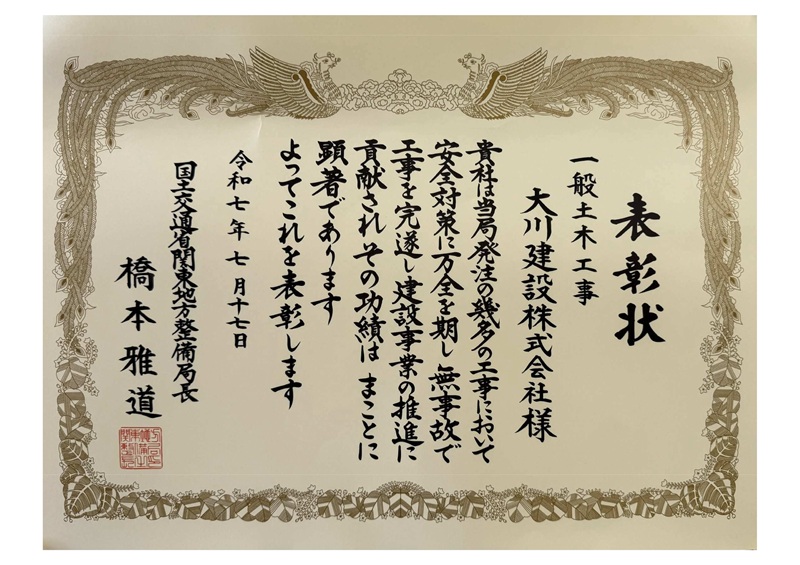 表彰状
一般土木工事
大川建設株式会社様
貴社は当局発注の幾多の工事において
安全対策に万全を期し無事故で
工事を完遂し建設事業の推進に
貢献されその功績はまことに
顕著であります
よってこれを表彰します
令和七年七月十七日
国土交通省関東地方整備局長
橋本雅道